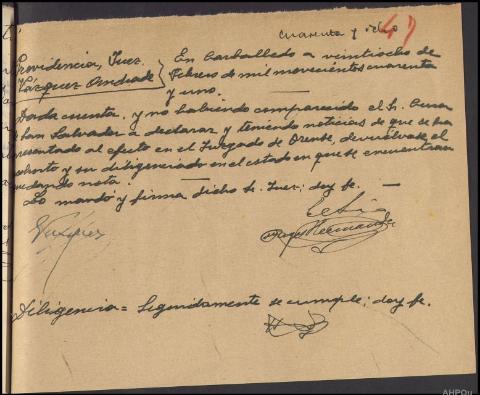 Cuarenta y ocho
41
Providencia, Juez
Vázquez Andrade
En Carballedo a veintiocho de
Febrero de mil novecientos cuarenta
y uno.
Dada cuenta, y no habiendo comparecido el Sr. Cura
San Salvador a declarar y teniendo noticias de que se ha
presentado al efecto en el Juzgado de Orense, devuélvase el
exhorto y su diligenciado en el estado en que se encuentran
quedando nota.
Lo mandó y firma dicho Sr. Juez; doy fe.
Vázquez
Diligencia = Seguidamente se cumple; doy fe.
AHPOu